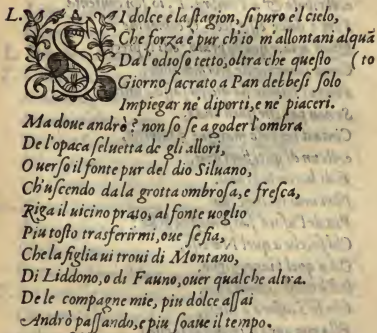 L. SI dolce è la ſtagion, ſi puro è'l cielo,
Che forza è pur ch'io m'allontani alquã
Da l'odioſo tetto, oltra che queſto (to
Giorno ſacrato a Pan debbeſi ſolo
Impiegar ne' diporti, e ne' piaceri.
Ma doue andrò? non ſo ſe a goder l'ombra
De l'opaca ſeluetta de gli allori,
O uerſo il fonte pur del dio Siluano,
Ch'uſcendo da la grotta ombroſa, e freſca,
Riga il uicino prato, al fonte uoglio
Piu toſto trasferirmi, oue ſe fia,
Che la figlia ui troui di Montano,
Di Liddono, o di Fauno, ouer qualche altra.
De le compagne mie, piu dolce aſſai
Andrò paſſando, e piu ſoaue il tempo.